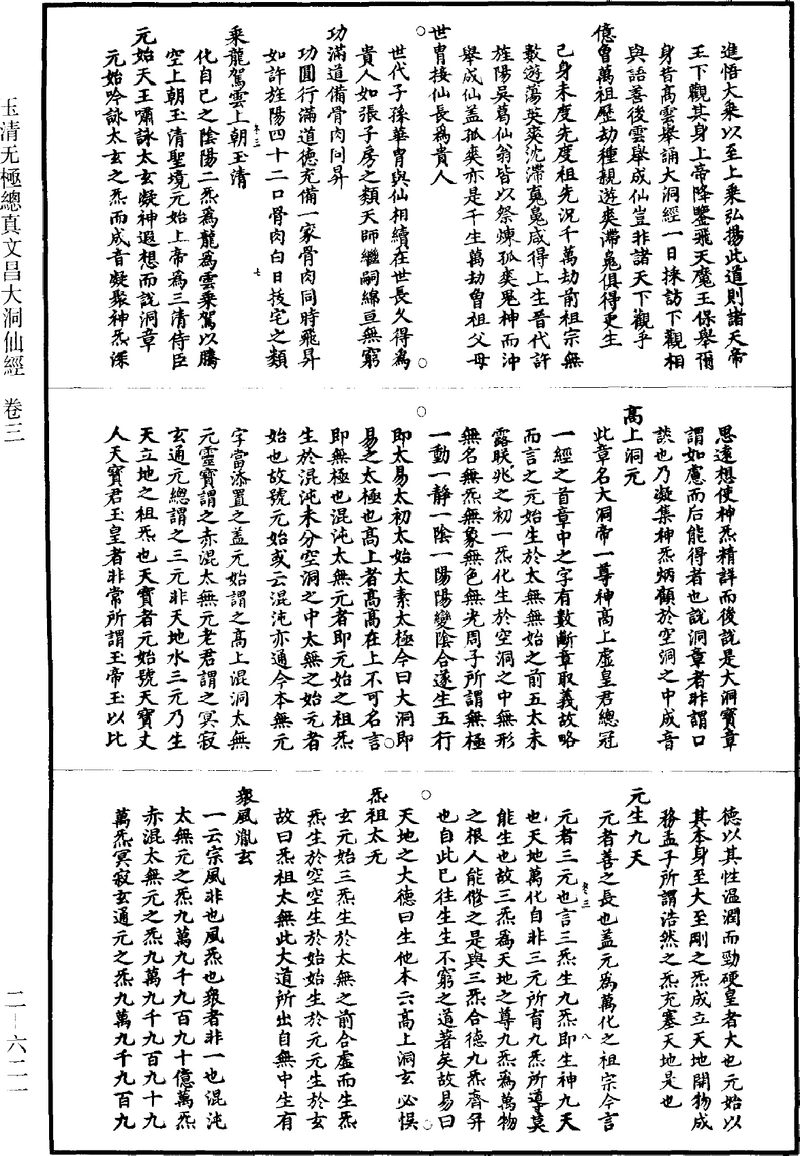 進悟大乘以至上乘弘揚此道則諸天帝
王下觀其身上帝降鑒飛天魔王保舉爾
身昔高雲舉誦大洞經一日採訪下觀相
與語善後雲舉成仙豈非諸天下觀乎
億曾萬祖歷劫種親遊爽滯䰟俱得更生
己身未度先度祖先況千萬劫前祖宗無
數遊蕩英爽沈滯䰟䰟咸得上生晉代許
旌陽吳葛仙翁皆以祭煉孤爽鬼神而沖
舉成仙蓋孤爽亦是千生萬劫曾祖父母
世胄接仙長為貴人
世代子孫華胄與仙相續在世長久得為
貴人如張子房之類天師繼嗣綿亘無窮
功滿道備骨肉同昇
功圓行滿道德充備一家骨肉同時飛昇
如許旌陽四十二口骨肉白日拔宅之類
乘龍駕雲上朝玉清
化自己之陰陽二炁為龍為雲乘駕以騰
空上朝玉清聖境元始上帝為三清侍臣
元始天王嘯詠太玄凝神遐想而說洞章
元始吟詠太玄之炁而成音凝聚神炁深
思遠想使神炁精詳而後說是大洞寶章
謂如慮而后能得者也說洞章者非謂口
談也乃凝集神炁炳顧於空洞之中成音
高上洞元
此章名大洞帝一尊神高上虛皇君總冠
一經之首章中之字有數斷章取義故略
而言之元始生於太無無始之前五太未
露朕兆之初一炁化生於空洞之中無形
無名無炁無象無色無光周子所謂無極
一動一靜一陰一陽陽變陰合遂生五行
即太易太初太始太素太極今曰大洞即
易之太極也高上者高高在上不可名言
即無極也混沌太無元者即元始之祖炁
生於混沌未分空洞之中太無之始元者
始也故號元始或云混沌亦通今本無元
字當添置之蓋元始謂之高上混洞太無
元靈寶謂之赤混太無元老君謂之冥寂
玄通元總謂之三元非天地水三元乃生
天立地之祖炁也天寶者元始號天寶丈
人天寶君玉皇者非常所謂玉帝玉以比
德以其性溫潤而勁硬皇者大也元始以
其本身至大至剛之炁成立天地開物成
務孟子所謂浩然之炁充塞天地是也
元生九天
元者善之長也蓋元為萬化之祖宗今言
元者三元也言三炁生九炁即生神九天
也天地萬化自非三元所育九炁所導莫
能生也故三炁為天地之尊九炁為萬物
之根人能修之是與三炁合德九炁齊昇
也自此已往生生不窮之道著矣故易曰
天地之大德曰生他本云高上洞玄必悞
炁祖太无
玄元始三炁生於太無之前合虛而生炁
炁生於空空生於始始生於元元生於玄
故曰炁祖太無此大道所出自無中生有
衆風胤玄
一云宗風非也風炁也衆者非一也混沌
太無元之炁九萬九千九百九十億萬炁
赤混太無元之炁九萬九千九百九十九
萬炁冥寂玄通元之炁九萬九千九百九
玉清无極總真文昌大洞仙經 卷三
二－六二一